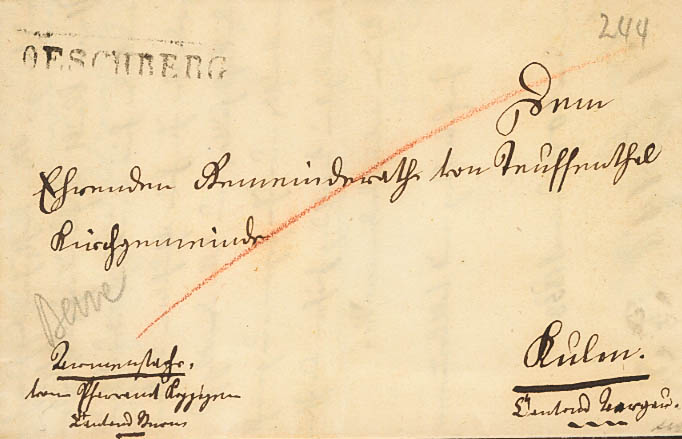 244
OESCHBERG
Dem
Ehrenden Gemeinderath von Teuffenthal
Kirchgemeinde
Berne
Kulm.
Armensache.
vom Pfarramt Koppigen
Canton Bern
Canton Aargau.